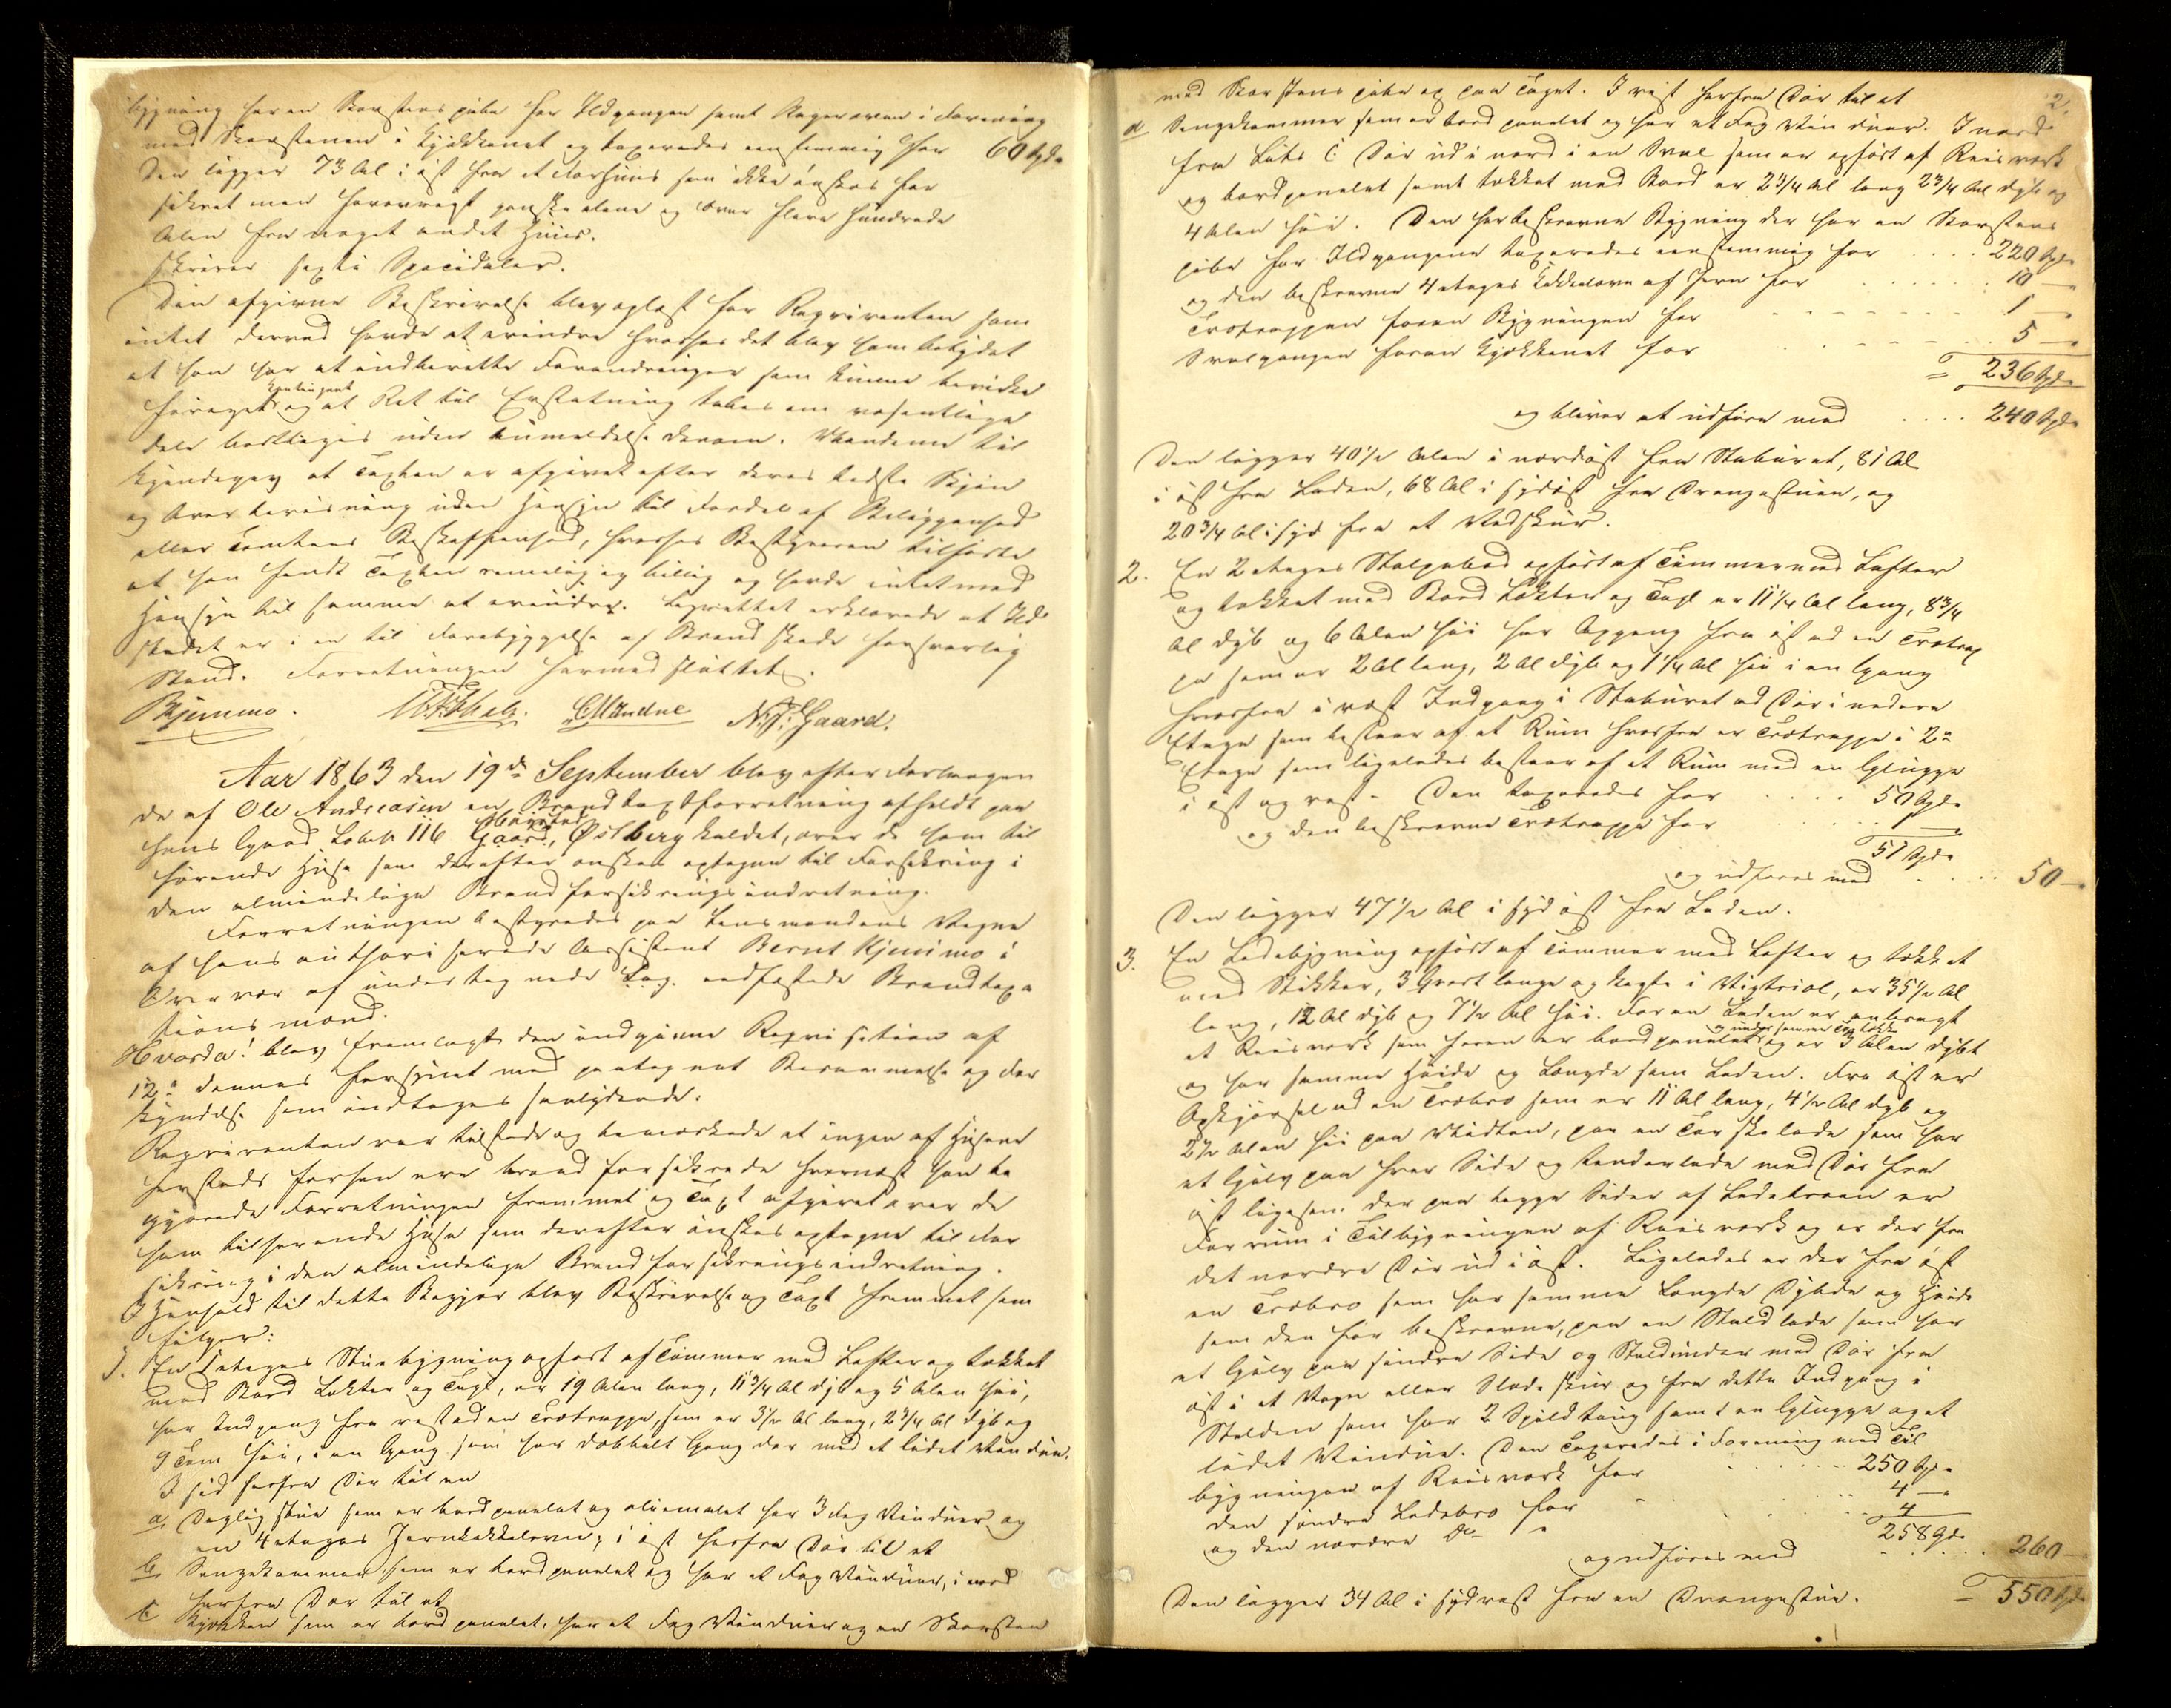 bygning har en Skorstens pibe for Ildgangen samt Bagerovn i Forening
med Skorstenen i Kjøkkenet og taxeredes eenstemmig for 60 Spd.
Den ligger 73 Al i øst fra et Vaaghuus som ikke ønskes for
sikret men forøvrigt ganske alene og over flere hundrede
Alen fra noget andet Huus.
skriver sexti Speciedaler.
Den afgivne Beskrivelse blev oplæst for Reqvirenten som
intet derved havde at erindre hvorhos det blev ham betydet
at han har at indberette Forandringer som kunne bevirke
forøget Kontingent og at Ret til Erstatning tabes om væsentlige
dele borttages uden Anmeldelse derom. Mændene til
kjendegav at Taxten er afgivet efter deres bedste Skjøn
og Overbeviisning uden Hensyn til Fordel af Beliggenhed
eller Tomtens Beskaffenhed, hvorhos Bestyreren tilførte
at han fandt Taxten rimelig og billig og havde intet med
Hensyn til samme at erindre. Lagrettet erklærede at Ild
stedet er i en til Forebyggelse af Brandskade forsvarlig
Stand. Forretningen hermed sluttet.
BKjemmo. C. Mandue N. J. Gaard.
Aar 1863 den 19de September blev efter Forlangen
de af Ole Andreasen en Brandtaxtforretning afholdt paa
hans Gaard Løbe No 116 Gaard, Østberg kaldet, over de ham til
hørende Huse som derefter ønskes optagne til Forsikring i
den almindelige Brandforsikringsindretning.
Forretningen bestyredes paa Lensmandens Vegne
af hans authoriserede Assistent Bernt Kjemmo i
Overvær af undertegnede Lag. eedfæstede Brandtaxa
tionsmænd.
Hvorda! blev fremlagt den indgivne Reqvisition af
12te dennes forsynet med paategnet Berammelse og For
kyndelse som indtages saalydende:
Reqvirenten var tilstede og bemærkede at ingen af Husene
hersteds forhen vare brandforsikrede hvornæst han be
gjærede Forretningen fremmet og Taxt afgivet over de
ham tilhørende Huse som derefter ønskes optagne til For
sikring i den almindelige Brandforsikringsindretning.
I Henhold til dette Begjær blev Beskrivelse og Taxt fremmet som
følger:
1. En 1 etages Stuebygning opført af Tømmer med Lofter og tækket
med Bord Lækter og Tagl, er 19 Alen lang, 11 3/4 Al dyb og 5 Alen høi,
har Indgang fra vest ad en Trætrappe, som er 3 1/2 Al lang, 2 3/4 Al dyb og
9 Tom høi, i en Gang som har dobbelt Gangdør med et lidet Vindue.
I syd herfra Dør til en
a, Dagligstue som er bordpanelet og oliemalet har 3 Fag Vinduer og
en 4 etages Jernkakkelovn; i øst herfra Dør til et
b, Sengekammer som er bordpanelet og har et Fag Vinduer, i nord
herfra Dør til et
c Kjøkken som er bordpanelet, har et Fag Vinduer og en Skorsten
2.
med Skorstens pibe op paa Taget. I vest herfra Dør til et
d Sengekammer som er bordpanelet og har et Fag Vinduer. I nord
fra Litr C Dør ud i nord i en Sval som er opført af Reisværk
og bordpanelet samt tækket med Bord er 2 3/4 Al lang 2 3/4 Al dyb og
4 Alen høi. Den her beskrevne Bygning der har en Skorstens
pibe for Ildgangene taxeredes eenstemmig for .... 220 Spd.
og den beskrevne 4 etages Kakkelovn af Jern for ...... 10 —
Trætrappen foran Bygningen for ...... 1 —
Svalgangen foran Kjøkkenet for ...... 5 —
= 236 Spd.
og bliver at udføre med .... 240 Spd.
Den ligger 40 1/2 Alen i nordøst fra Stabúret, 81 Al
i øst fra Laden, 68 Al i sydøst fra Drengestúen, og
20 3/4 Al i syd fra et Vedskúr.
2. En 2 etages Stolpebod opført af Tømmer med Lofter
og tækket med Bord Lækter og Tagl er 11 1/4 Al lang, 8 3/4
Al dyb og 6 Alen høi har Opgang fra øst ad en Trætrap
pe som er 2 Al lang, 2 Al dyb og 1 1/4 Al høi i en Gang
hvorfra i vest Indgang i Stabúret ad Dør i nedre
Etage som bestaar af et Rum hvorfra er Trætrappe i 2n
Etage som ligeledes bestaar af et Rum med en Glugge
i øst og vest. Den taxeredes for .... 50 Spd.
og den beskrevne Trætrappe for .... 1 —
51 Spd.
og udføres med .... 50 —
Den ligger 47 1/2 Al i sydøst fra Laden.
3. En Ladebygning opført af Tømmer med Lofter og tækket
med Stikker, 3 Qvart lange og kogte i Vigtriol, er 35 1/2 Al
lang, 12 Al dyb og 7 1/2 Al høi. Foran Laden er anbragt
et Reisværk som foran er bordpanelet og under samme Tag tække og er 3 Alen dybt
og har samme Høide og Længde som Laden. Fra øst er
Opkjørsel ad en Træbro som er 11 Al lang, 4 1/2 Al dyb og
2 1/2 Alen høi paa Midten, paa en Tærskelade som har
et Gulv paa hver Side og Underlade med Dør fra
øst ligesom der paa begge Sider af Ladebroen er
Forrum i Tilbygningen af Reisværk og er der fra
det nordre Dør ud i øst. Ligeledes er der fra øst
en Træbro som har samme Længde Dybde og Høide
som den før beskrevne, paa en Staldlade som har
et Gulv paa søndre Side og Stald under med Dør fra
øst i et Vogn eller Slædeskúr og fra dette Indgang i
Stalden som har 2 Spiltoug samt en Glugge og et
lidet Vindúe. Den taxeredes i Forening med Til
bygningen af Reisværk for ...... 250 Spd.
den søndre Ladebro for .... 4 —
og den nordre Do " .... 4
258 Spd.
og udføres med .... 260 —
Den ligger 34 Al i sydvest fra en Drengestúe. = 550 Spd.